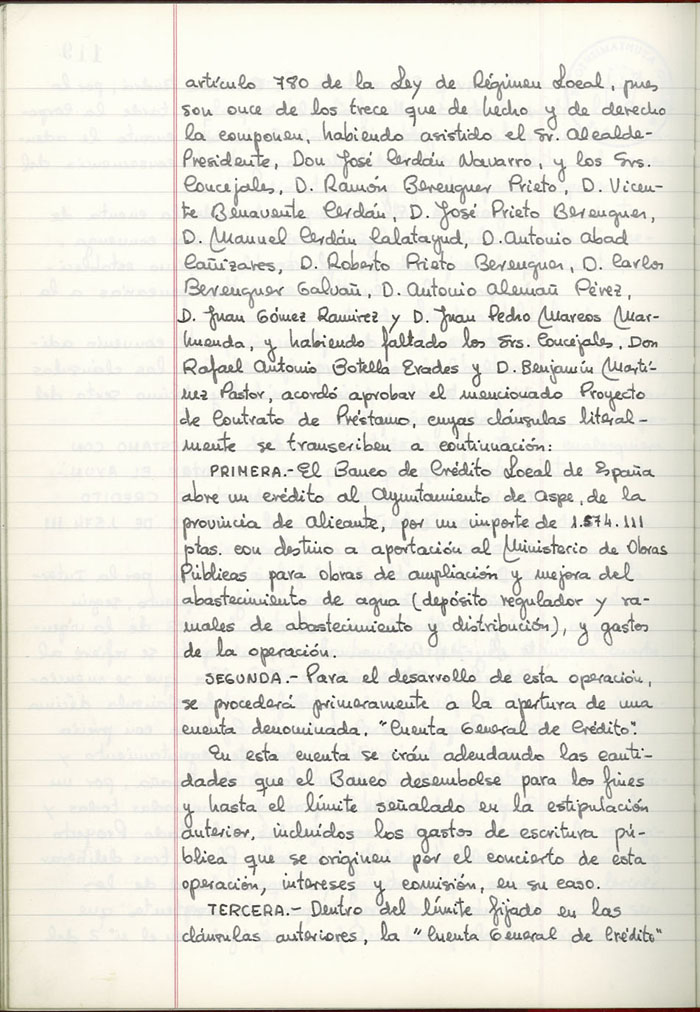 artículo 780 de la Ley de Régimen Local, pues
son once de los trece que de hecho y de derecho
la componen, habiendo asistido el Sr. Alcalde-
Presidente, Don José Cerdán Navarro, y los Srs.
Concejales, D. Ramón Berenguer Prieto, D. Vicen-
te Benavente Cerdán, D. José Prieto Berenguer,
D. Manuel Cerdán Calatayud, D. Antonio Abad
Cañizares, D. Roberto Prieto Berenguer, D. Carlos
Berenguer Galvañ, D. Antonio Alemañ Pérez,
D. Juan Gómez Ramirez y D. Juan Pedro Marcos Mar-
huenda, y habiendo faltado los Srs. Concejales, Don
Rafael Antonio Botella Erades y D. Benjamín Martí-
nez Pastor, acordó aprobar el mencionado Proyecto
de Contrato de Préstamo, cuyas cláusulas literal-
mente se transcriben a continuación:
PRIMERA.- El Banco de Crédito Local de España
abre un crédito al Ayuntamiento de Aspe, de la
provincia de Alicante, por un importe de 1.574.111
ptas. con destino a aportación al Ministerio de Obras
Públicas para obras de ampliación y mejora del
abastecimiento de agua (depósito regulador y ra-
males de abastecimiento y distribución), y gastos
de la operación.
SEGUNDA.- Para el desarrollo de esta operación,
se procederá primeramente a la apertura de una
cuenta denominada, "Cuenta General de Crédito".
En esta cuenta se irán adeudando las canti-
dades que el Banco desembolse para los fines
y hasta el límite señalado en la estipulación
anterior, incluidos los gastos de escritura pú-
blica que se originen por el concierto de esta
operación, intereses y comisión, en su caso.
TERCERA.- Dentro del límite fijado en las
cláusulas anteriores, la "Cuenta General de Crédito"